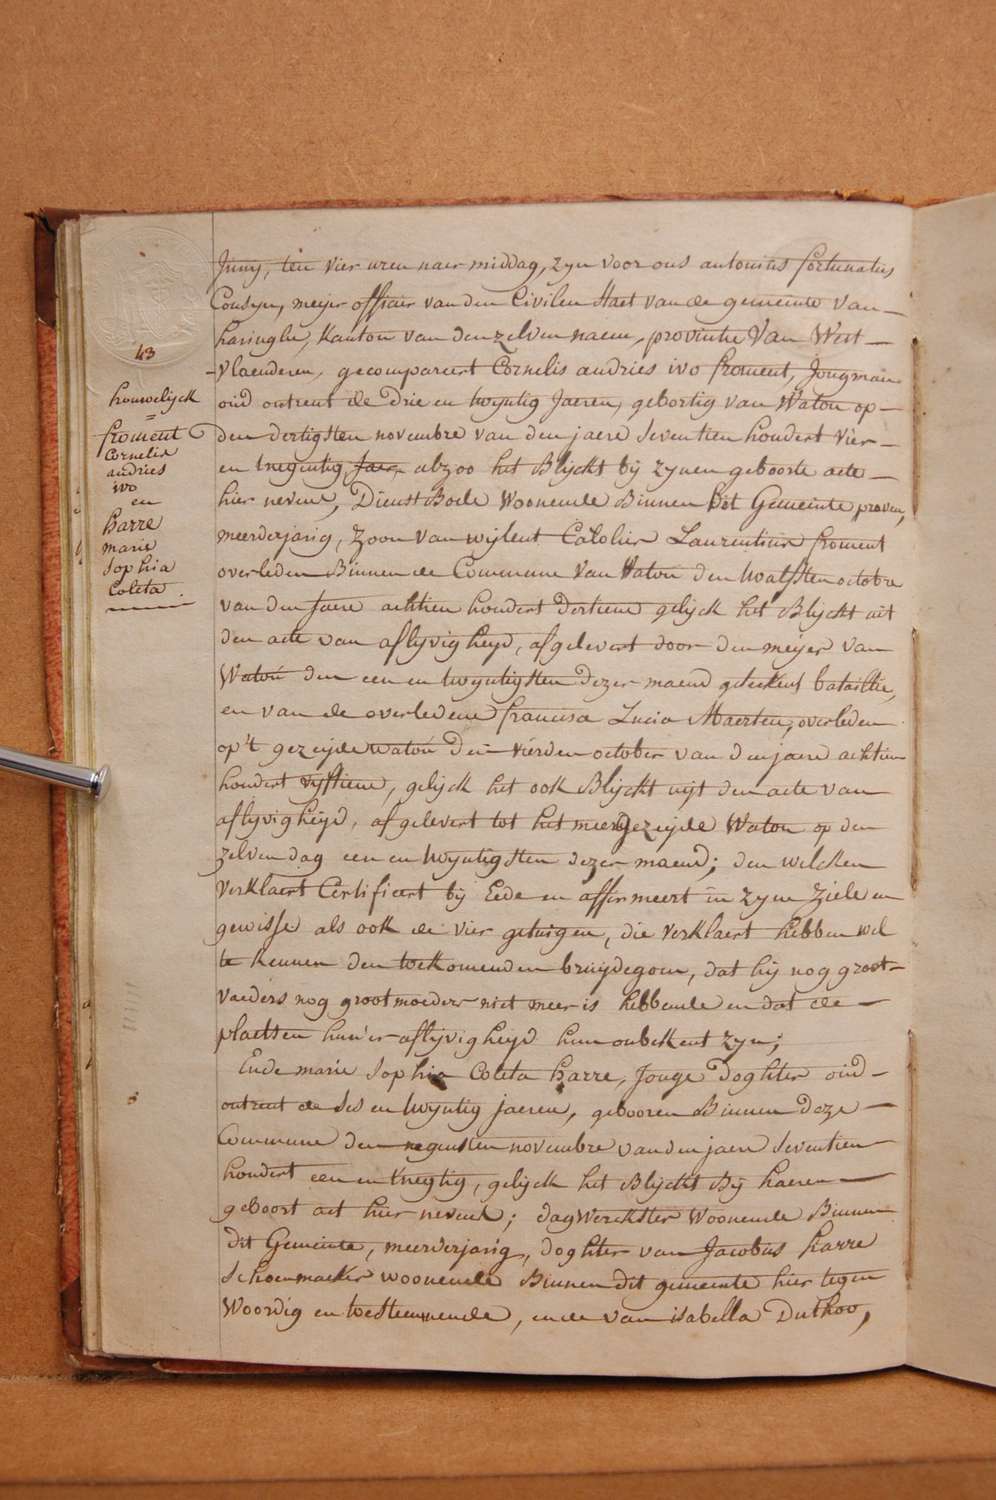 43
houwelijck
=
froment
Cornelis
andries
ivo
en
harre
marie
Sophia
Coleta
Juny, ten vier uren naer middag, zyn voor ons antonius fortunatus
Cousyn, meijer officier van den Civilen Staet van de gemeente van
haringhe, kanton van den zelven naem, provintie Van West
Vlaenderen, gecompareert Cornelis andries ivo froment, Jongman
oud ontrent de drie en twyntig Jaeren, gebortig van Watou op
den dertigsten novembre van den jaere seventien honderd vier
en tnegentig Jaer alzoo het Blyckt bij zynen geboorte acte
hier nevens, Dienst Bode Woonende Binnen dit Gemeente proven,
meerderjarig, zoon van wijlent Laurentius froment
overleden Binnen de Commune Van Watou den twalfsten octobre
van den Jaere achtien hondert dertiene gelijck het Blyckt uit
den acte van aflijvigheyd, afgelevert door den meijer van
Watou den een en twyntigsten dezer maend geteekent bataillie,
en van de overledene francisca Lucia Maerten, overleden
op't gezeijde watou den vierden october van den jaere achtien
hondert vyftiene, gelijck het ook Blijckt uijt den acte van
aflyvigheijd, afgelevert tot het meergezeijde Watou op den
zelven dag een en twyntigsten dezer maend; den welcken
verklaert Certifieert bij Eede en affirmeert in zyne Ziele en
gewisse als ook de vier getuigen, die verklaert hebben wel
te kennen den toekomenden bruijdegom, dat hij nog groot-
vaeders nog grootmoeders niet meer is hebbende en dat de
plaetsen hun'er aflyvigheyd hun onbekent zyn;
Ende marie Sophia Coleta harre, Jonge Doghter oud
ontrent de Ses en twyntig jaeren, gebooren Binnen deze
Commune den negensten novembre van den jaere seventien
hondert een en tnegtig, gelijck het Blijckt Bij haeren
geboort act hier nevens; dagwerckster Woonende Binnen
dit Gemeente, meerderjarig, doghter van Jacobus harre
Schoenmaeker woonende Binnen dit gemeente hier tegen
Woordig en toestemmende, ende van isabella Duthoo,